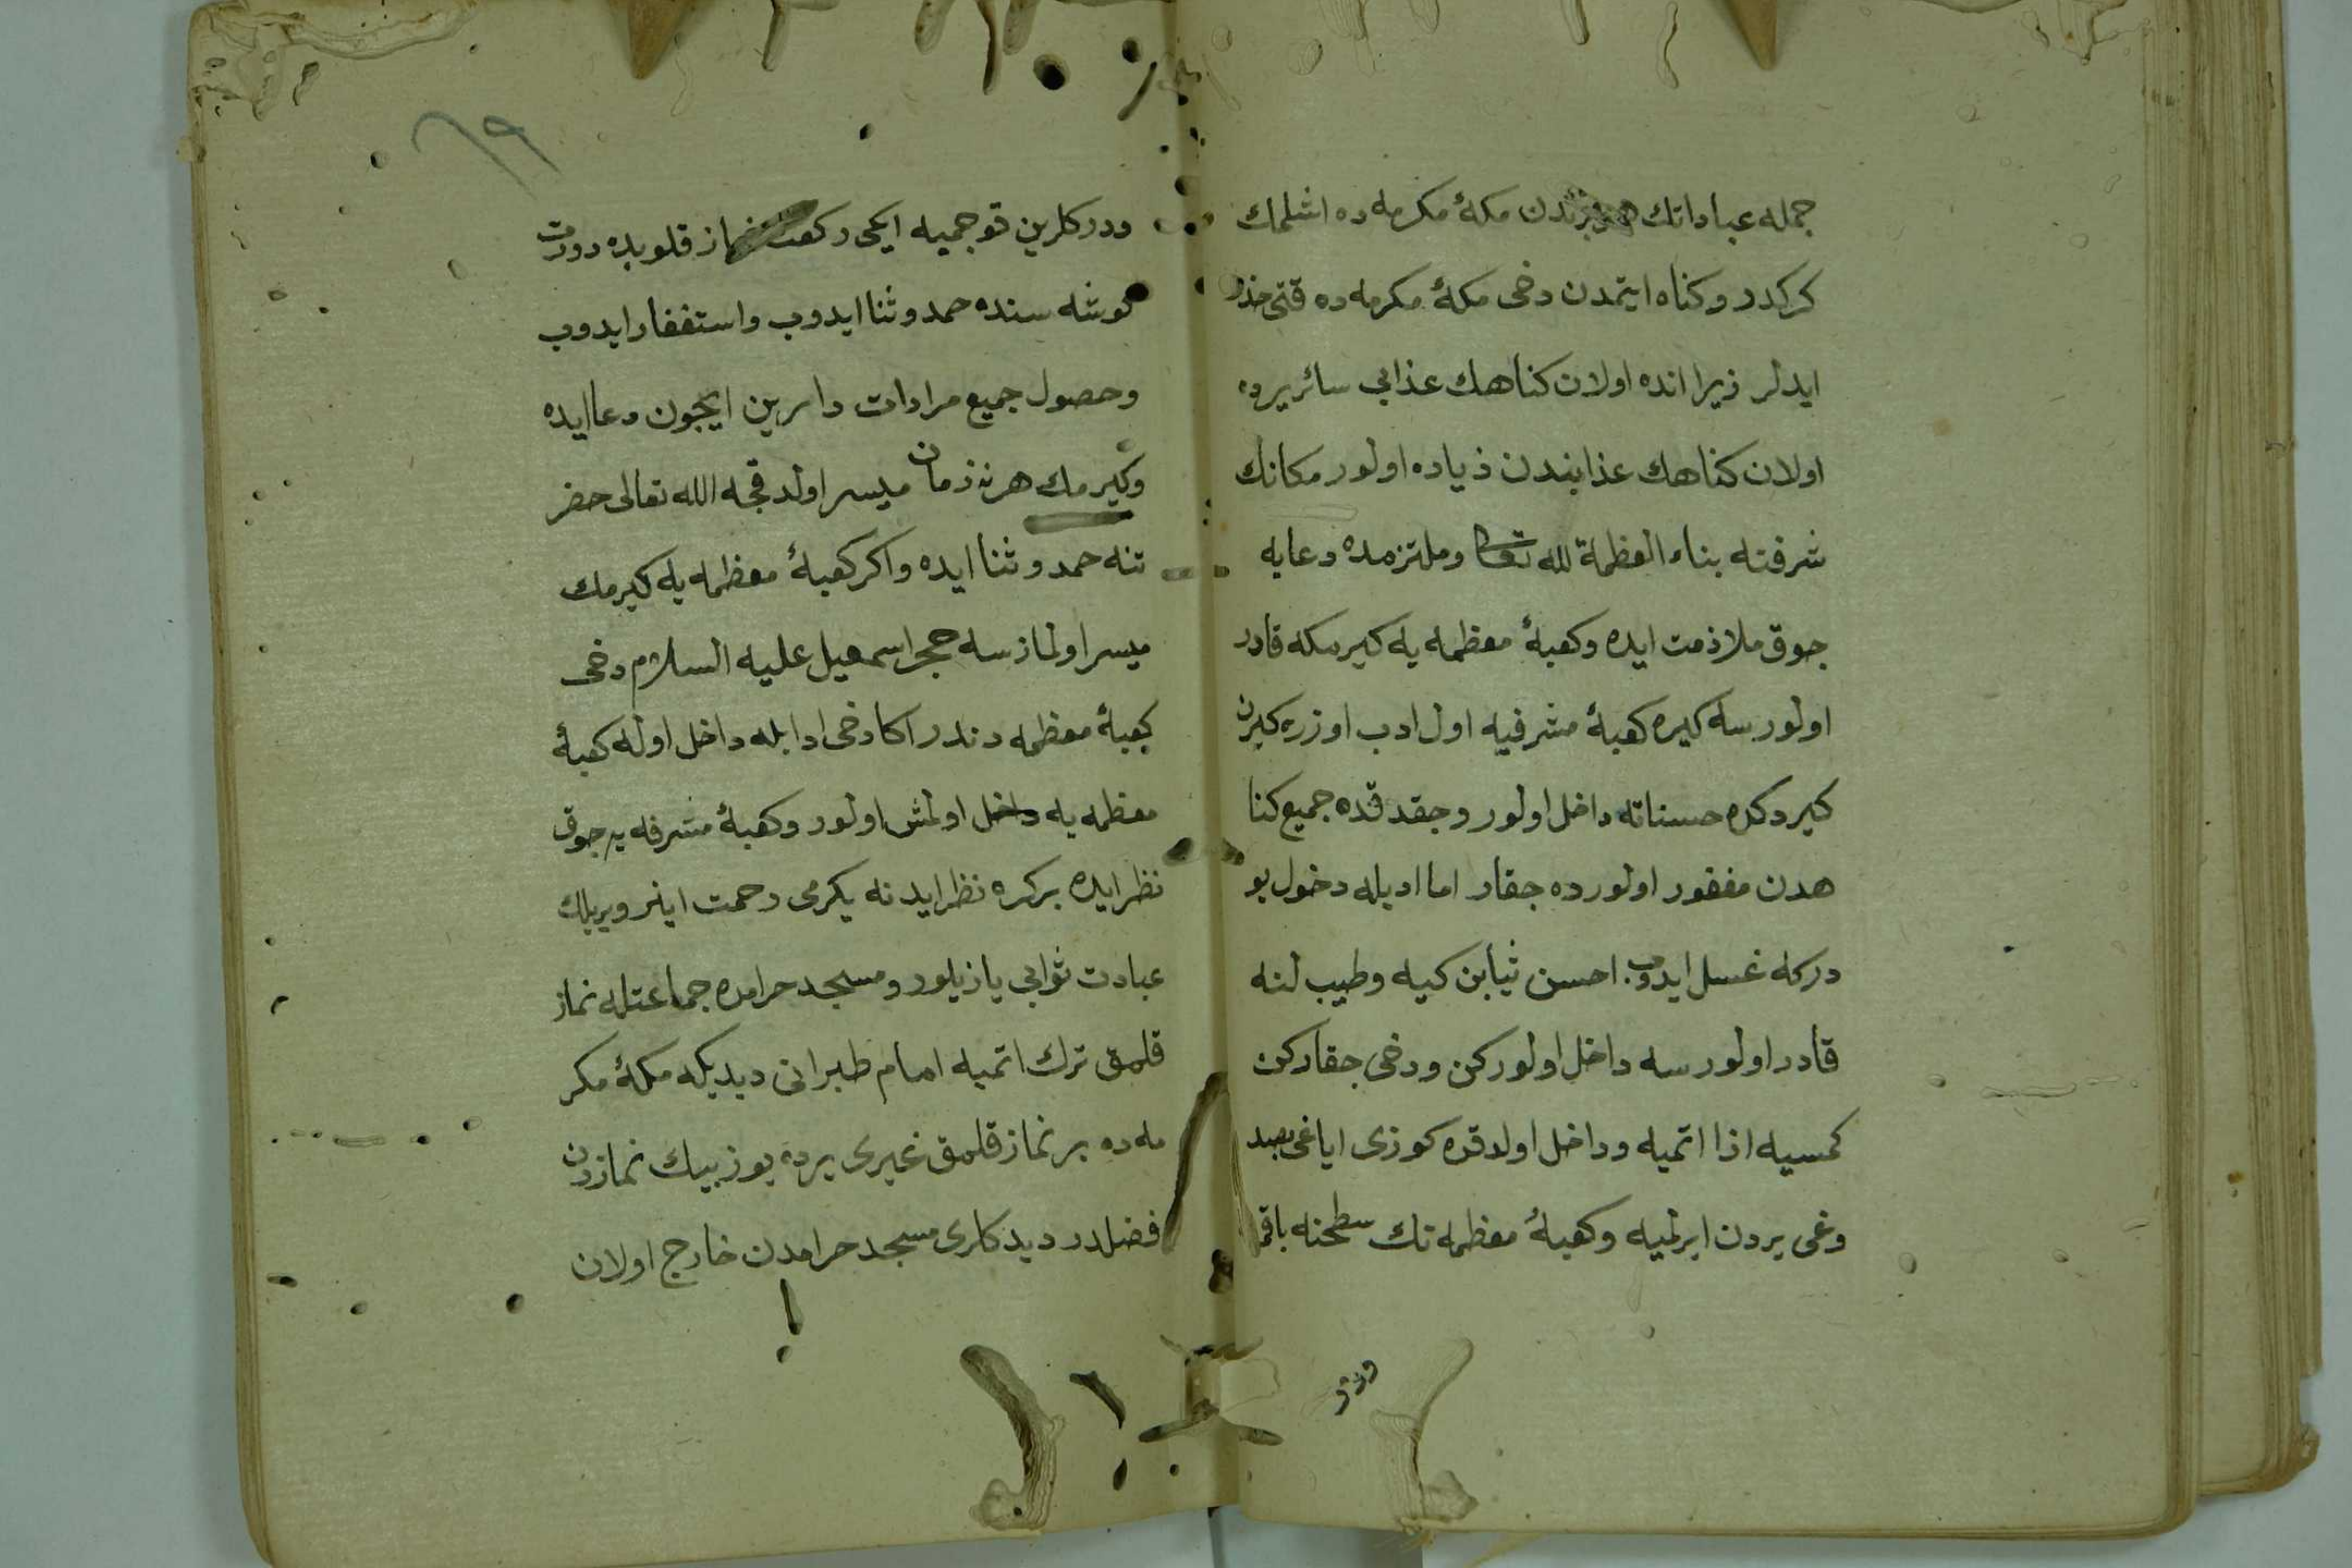 جمله عباداتك هر برندن مكۀ مكرمه ده اشلمك
كركدر و كناه ايتمدن دخى مكۀ مكرمه ده قتى حذر
ايدلر زيرا انده اولان كناهك عذابى سائر يرده
اولان كناهك عذابندن زياده اولور مكانك
شرفنه بناء العظمة لله تعالى وملتزمده دعايه
جوق ملازمت ايده وكعبۀ معظمه يه كيرمكه قادر
اولورسه كيره كعبۀ مشرفيه اول ادب اوزره كيرن
كيردكده حسناته داخل اولور وجقدقده جميع كنا
هدن مغفور اولورده جقار اما ادبله دخول بو
دركه غسل ايدوب احسن ثيابن كيه وطيب لنه
قادر اولورسه داخل اولوركن ودخى جقاركن
كمسيه اذا اتميه وداخل اولدقده كوزى اياغى بصد
وغى يردن ايرلميه وكعبۀ معظمه نك سطحنه باقميه
ودر
٦٩
ودركلرين قوجميه ايكى ركعت نماز قلوبده دورت
كوشه سنده حمد و ثنا ايدوب واستغفار ايدوب
وحصول جميع مرادات دارين ايجون دعا ايده
وكيرمك هر نه زمان ميسر اولدقجه الله تعالى حضر
تنه حمد و ثنا ايده واكر كعبۀ معظمه يه كيرمك
ميسر اولمازسه حجر اسمعيل عليه السلام دخى
كعبۀ معظمه دندر اكا دخى ادابله داخل اوله كعبۀ
معظمه يه داخل اولمش اولور وكعبۀ مشرفه يه جوق
نظر ايده بر كره نظر ايدنه يكرمى رحمت اينر وبر ييلك
عبادت ثوابى يازيلور ومسجد حرامده جماعتله نماز
قلمق ترك اتميه امام طبرانى ديديكه مكۀ مكر
مه ده بر نماز قلمق غيرى يرده يوز بيك نمازدن
فضلدر ديدكلرى مسجد حرامدن خارج اولان